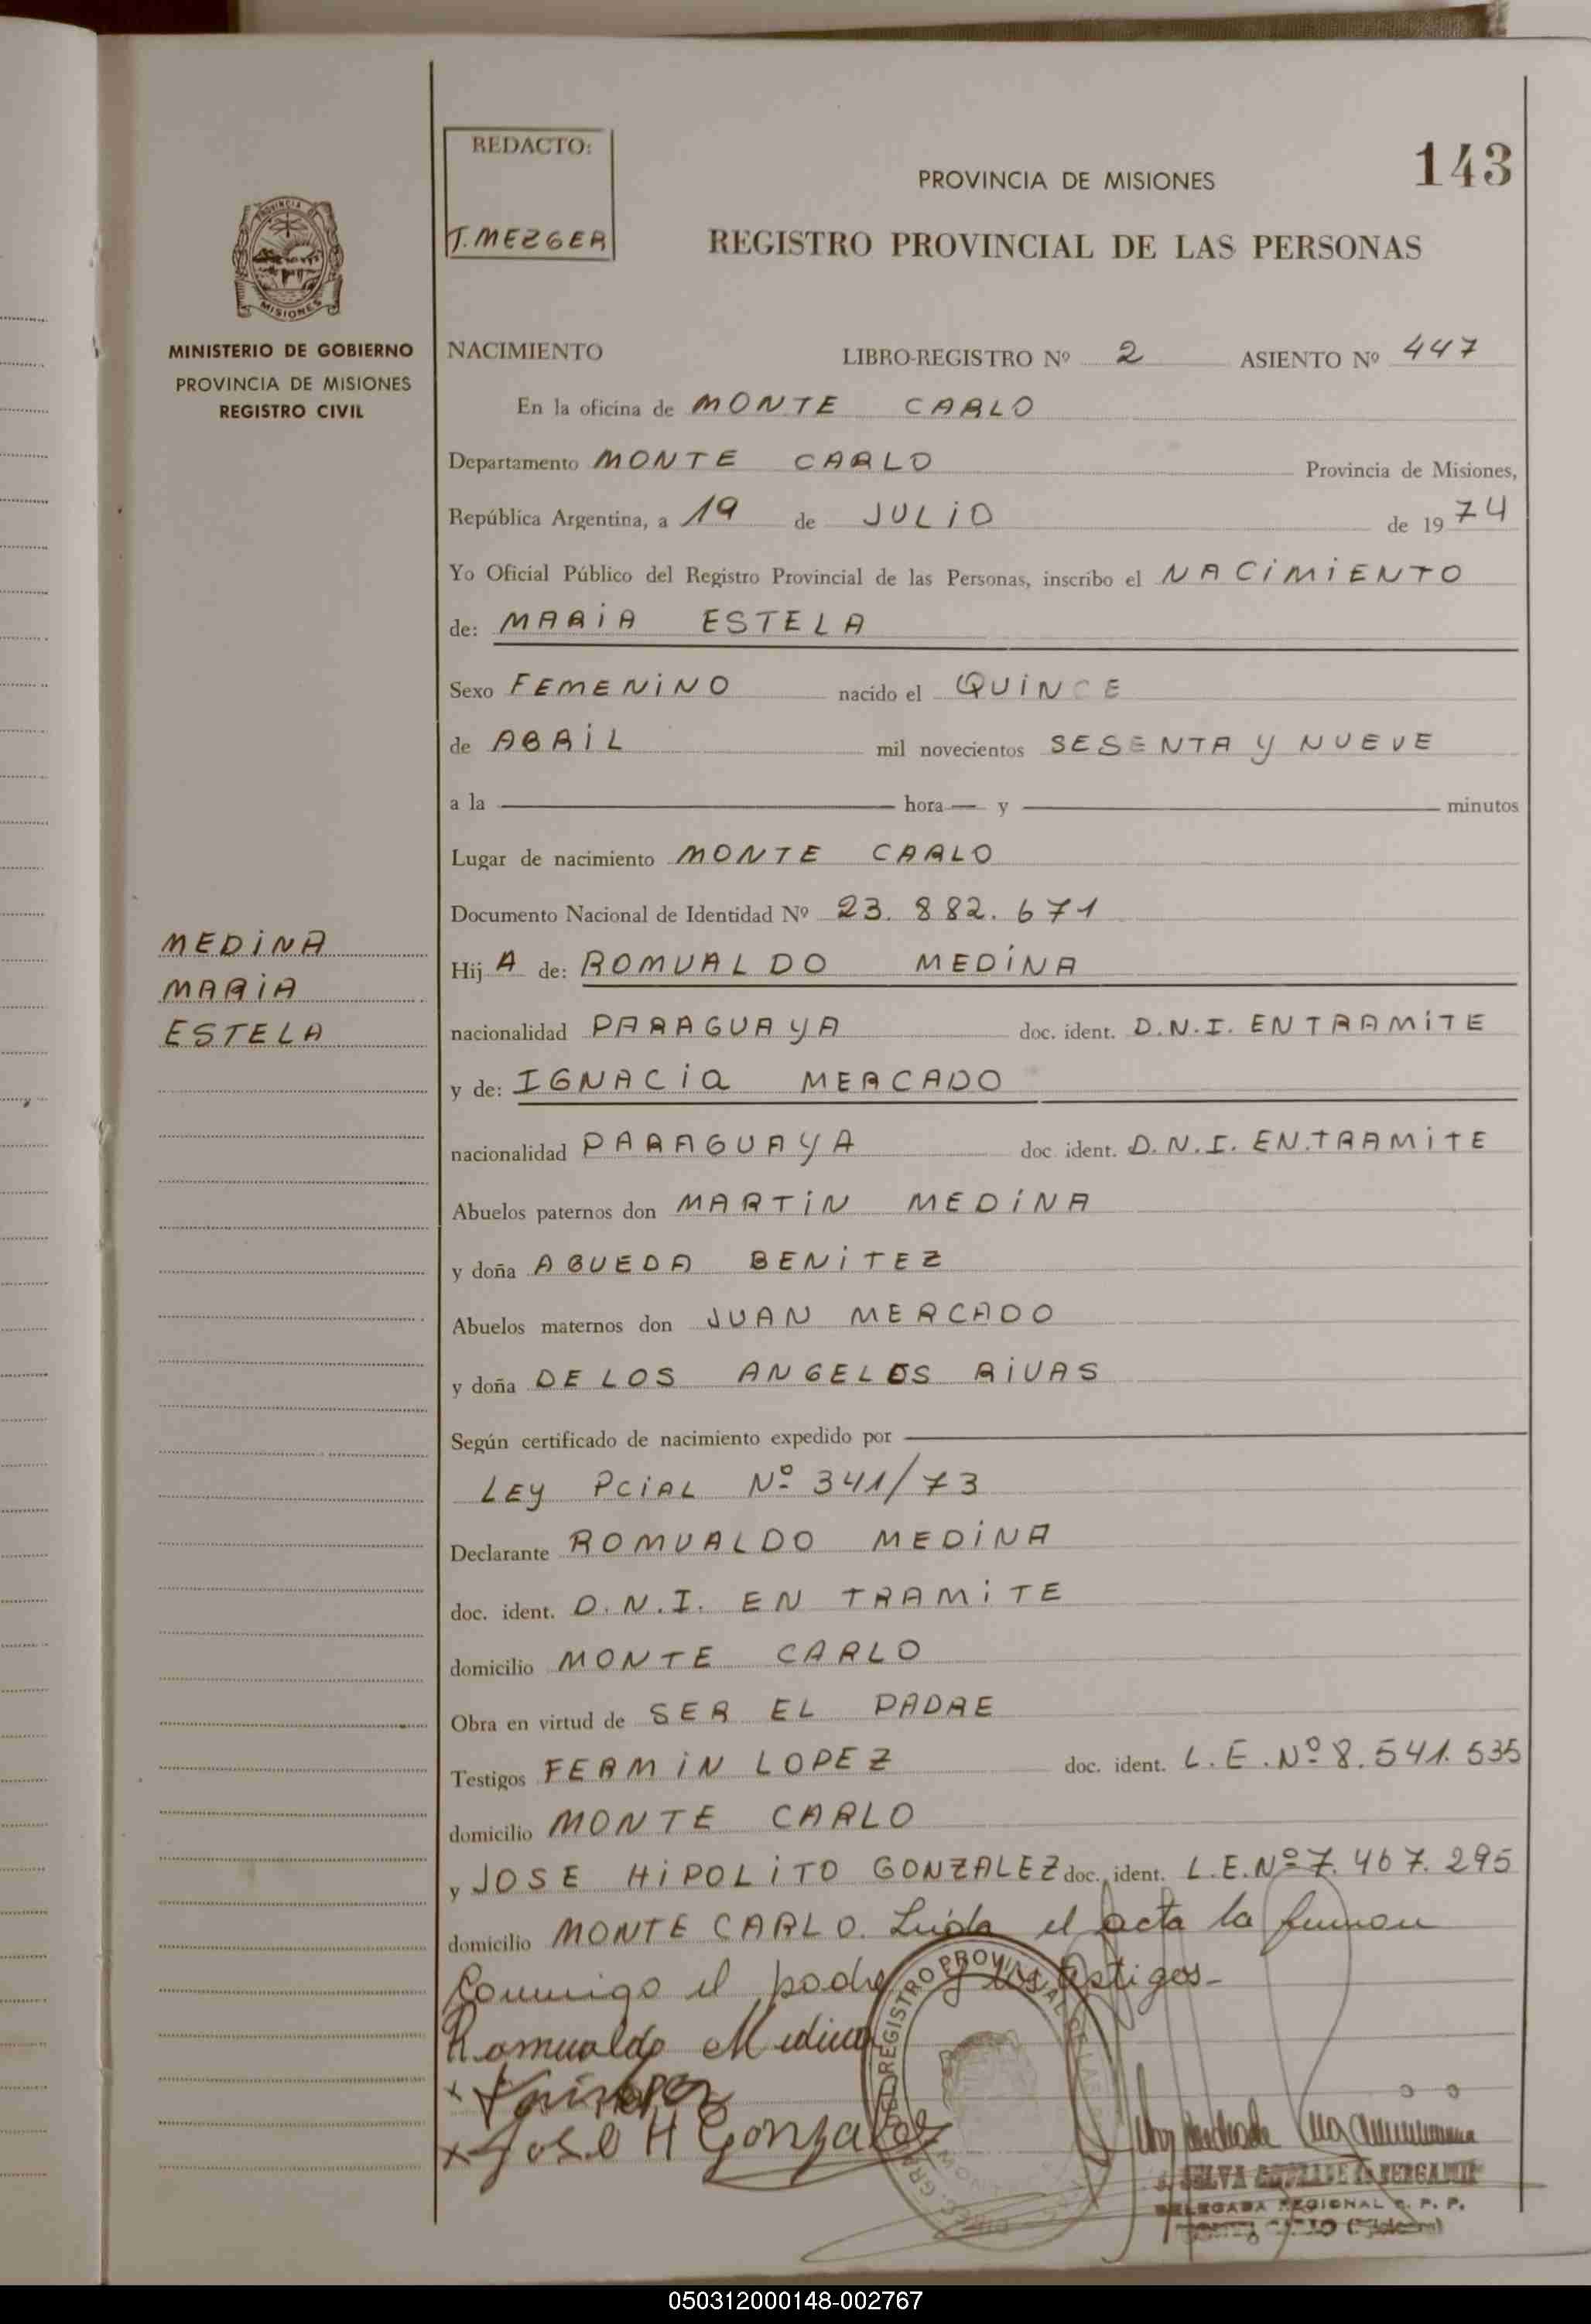 REDACTO:
T. MEZGER
143
PROVINCIA DE MISIONES
REGISTRO PROVINCIAL DE LAS PERSONAS
PROVINCIA DE
MISIONES
MINISTERIO DE GOBIERNO
PROVINCIA DE MISIONES
REGISTRO CIVIL
NACIMIENTO LIBRO-REGISTRO Nº 2 ASIENTO Nº 447
En la oficina de MONTE CARLO
Departamento MONTE CARLO Provincia de Misiones,
República Argentina, a 19 de JULIO de 19 74
Yo Oficial Público del Registro Provincial de las Personas, inscribo el NACIMIENTO
de: MARIA ESTELA
Sexo FEMENINO nacido el QUINCE
de ABRIL mil novecientos SESENTA y NUEVE
a la hora y minutos
Lugar de nacimiento MONTE CARLO
Documento Nacional de Identidad Nº 23.882.671
MEDINA
MARIA
ESTELA
Hij A de: ROMUALDO MEDINA
nacionalidad PARAGUAYA doc. ident. D.N.I. EN TRAMITE
y de: IGNACIA MERCADO
nacionalidad PARAGUAYA doc. ident. D.N.I. EN.TRAMITE
Abuelos paternos don MARTIN MEDINA
y doña AGUEDA BENITEZ
Abuelos maternos don JUAN MERCADO
y doña DE LOS ANGELES RIVAS
Según certificado de nacimiento expedido por
LEY PCIAL Nº 341/73
Declarante ROMUALDO MEDINA
doc. ident. D.N.I. EN TRAMITE
domicilio MONTE CARLO
Obra en virtud de SER EL PADRE
Testigos FERMIN LOPEZ doc. ident. L.E. Nº 8.541.535
domicilio MONTE CARLO
y JOSE HIPOLITO GONZALEZ doc. ident. L.E. Nº 7.467.295
domicilio MONTE CARLO. Leida el acta la firman
Conmigo el padre y los testigos-
Romualdo Medina
x Jose H Gonzalez
REGISTRO PROVINCIAL DE LAS
SELVA
DELEGADA REGIONAL R. P. P.
050312000148-002767